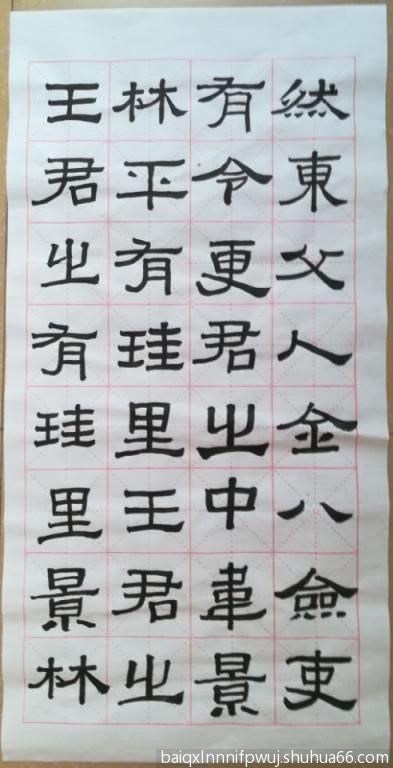 然東父人金八僉吏
有令更君之中韋景
林平有珪里王君之
王君之有珪里景林
baiqxlnnnifpwuj.shuhua66.com